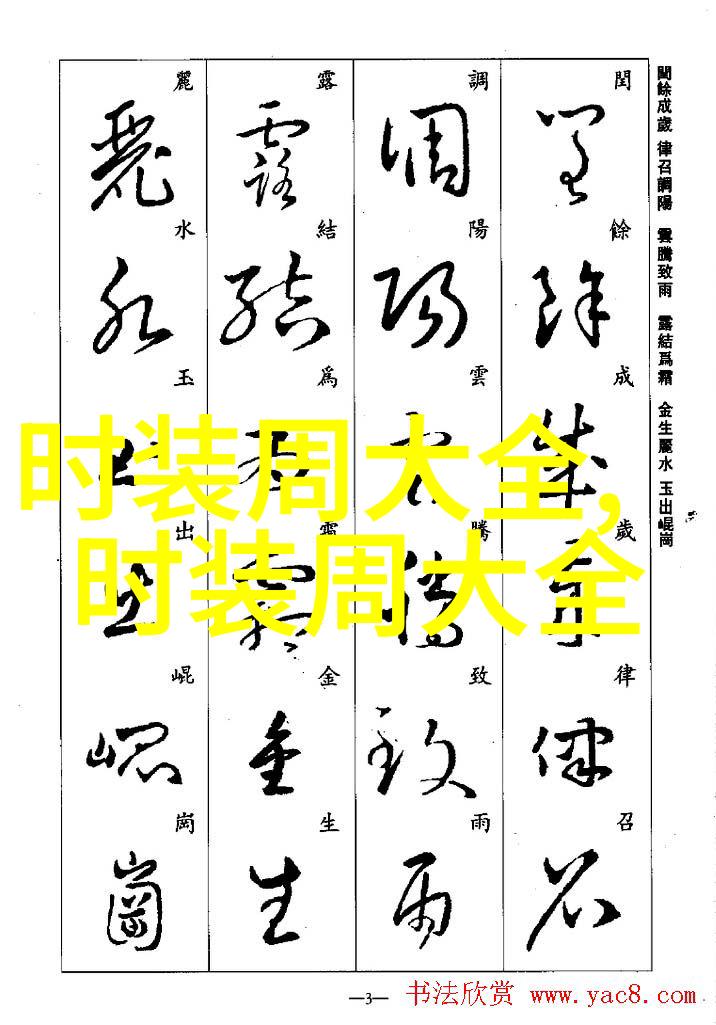 閏餘成歲 律召調陽 雲騰致雨 露結爲霜 金生麗水 玉出崐崗
閏
餘
成
歲
律
召
調
陽
雲
騰
致
雨
露
結
爲
霜
金
生
麗
水
玉
出
崐
崗
時装周大全,
时装周大全
—3—
书法欣赏 www.yac8.com